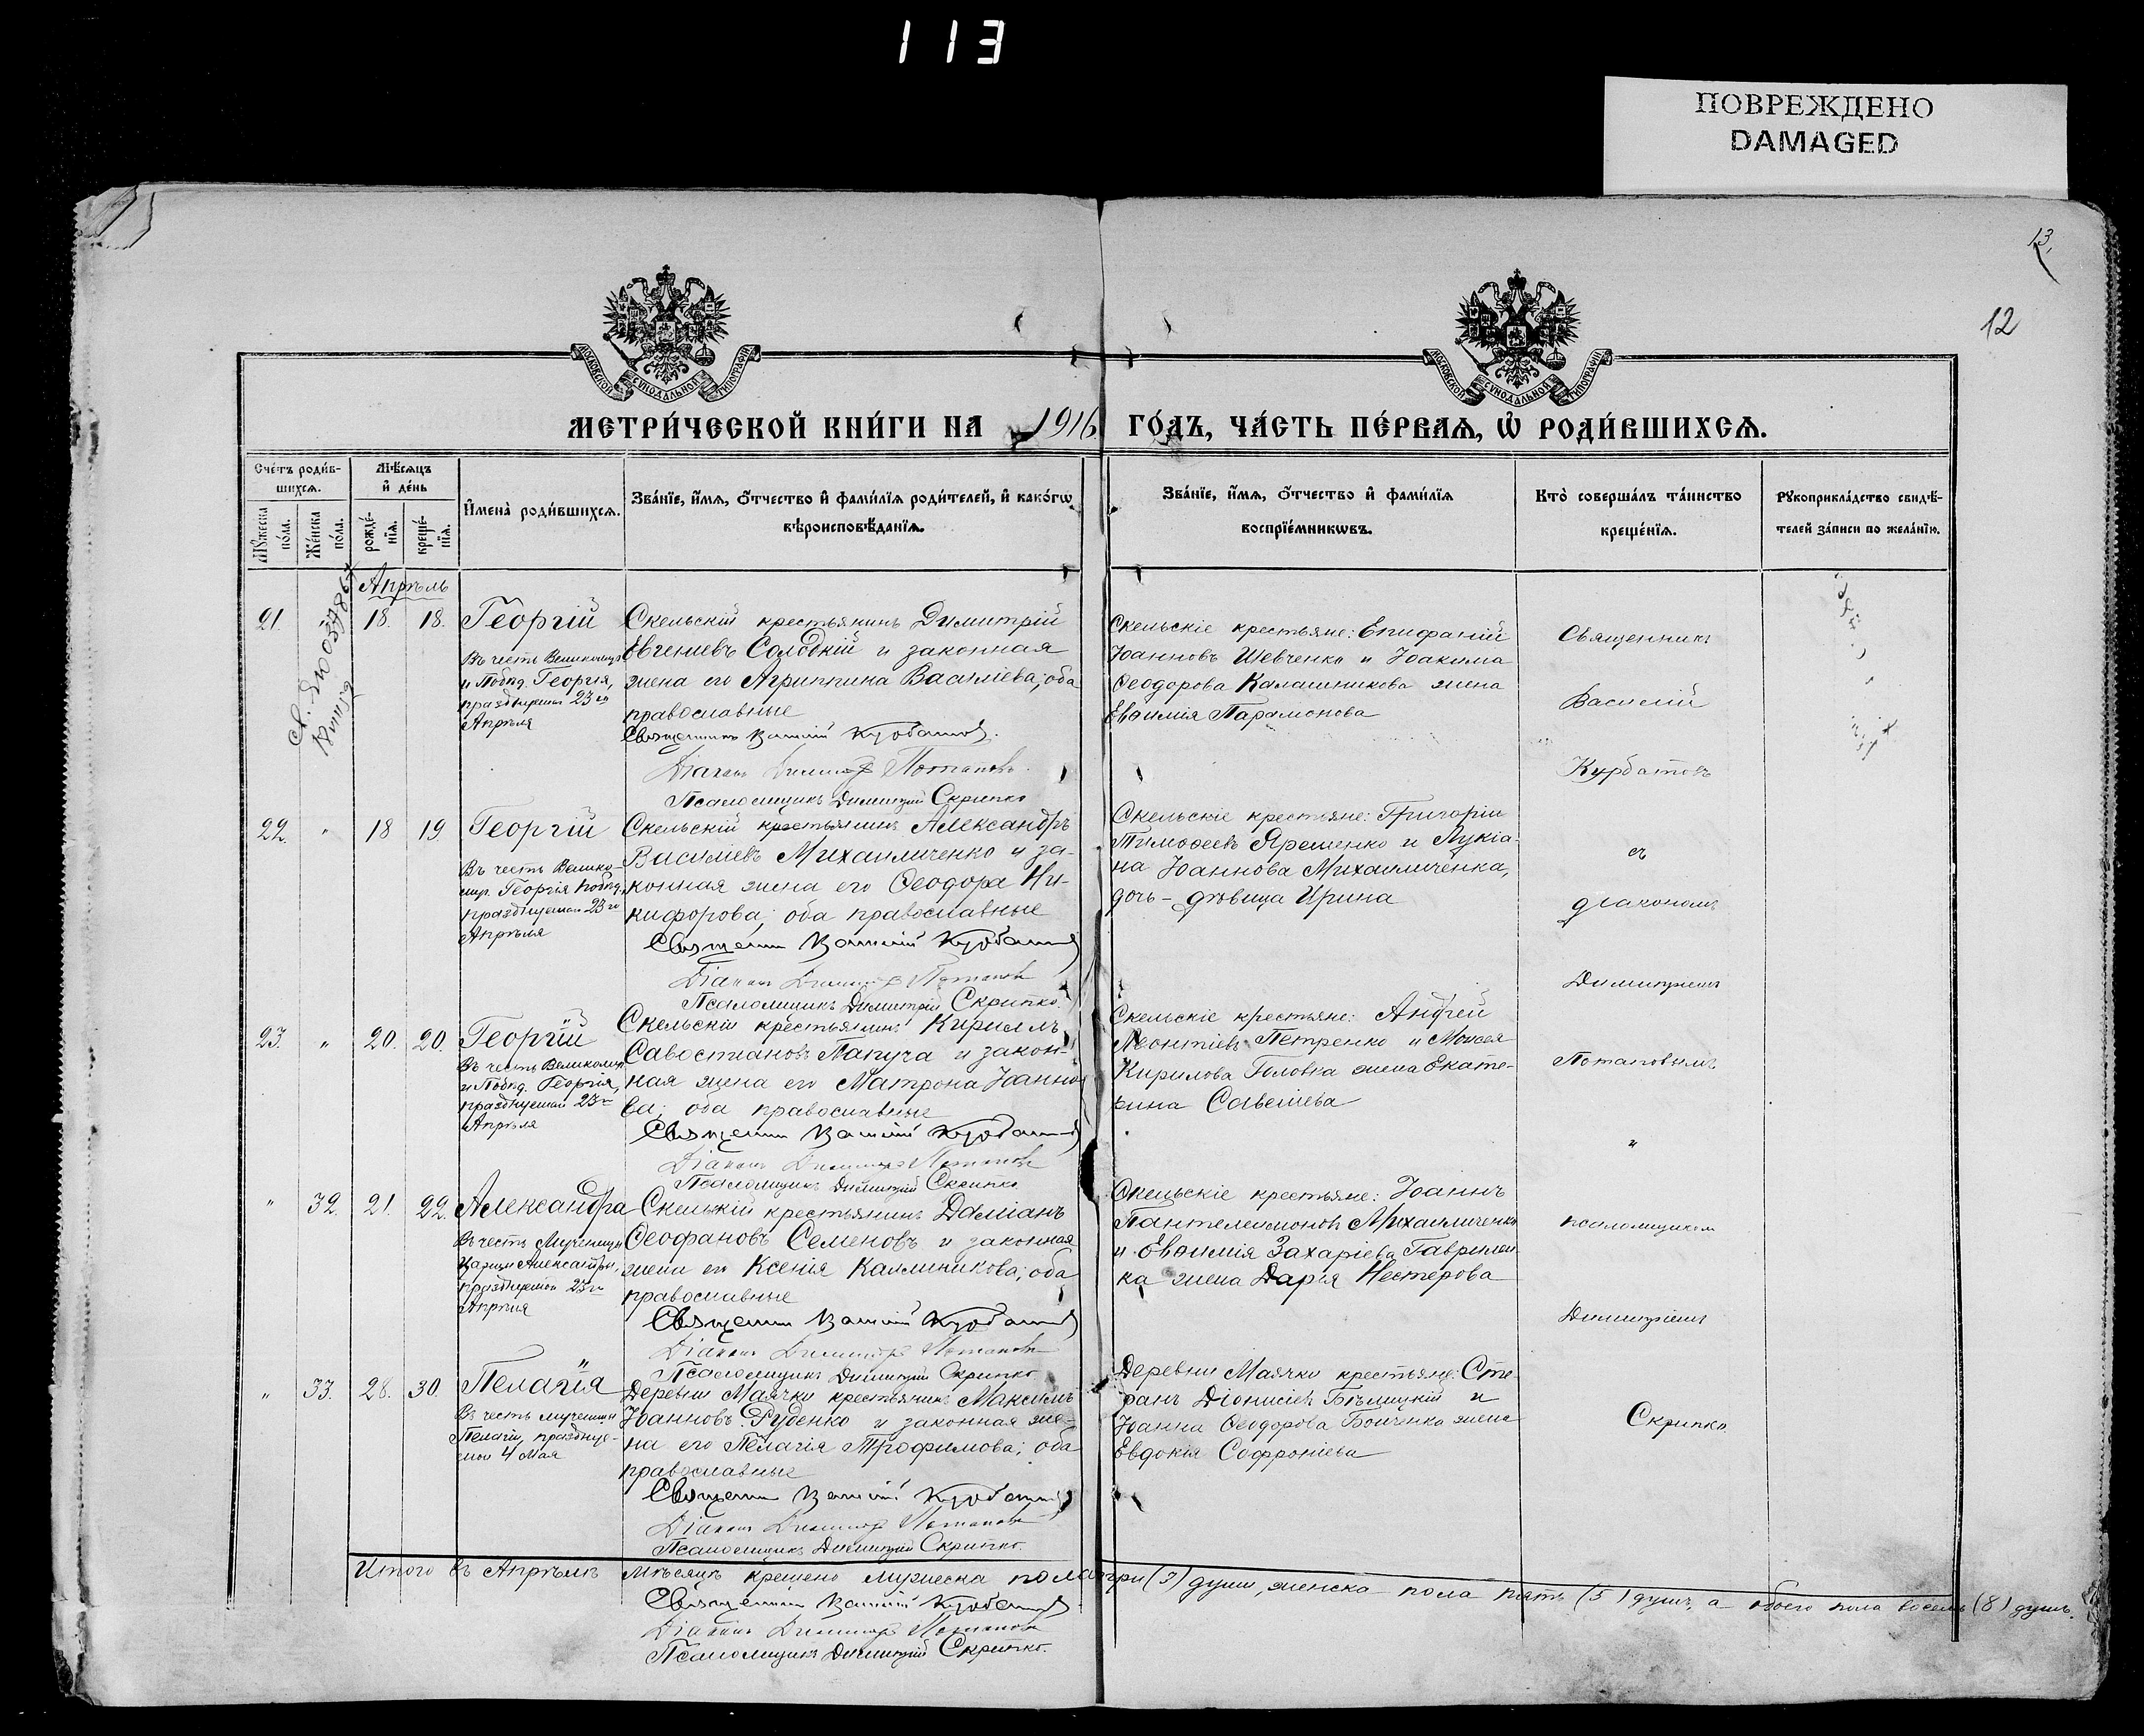 113
ПОВРЕЖДЕНО
DAMAGED
13,
12
МОСКОВСКОЙ СѴНОДАЛЬНОЙ ТИПОГРАФІИ
МОСКОВСКОЙ СѴНОДАЛЬНОЙ ТИПОГРАФІИ
МЕТРИ́ЧЕСКОЙ КНИ́ГИ НА 1916 ГО́ДЪ, ЧА́СТЬ ПЕ́РВАѦ, Ѡ҆ РОДИ́ВШИХСѦ.
Сче́тъ роди́в-
шихсѧ.
Мꙋ́жеска
по́ла.
Же́нска
по́ла.
Мѣ́сѧцъ
и҆ де́нь
рожде́-
нїѧ.
креще́-
нїѧ.
И҆мена̀ роди́вшихсѧ.
Зва́нїе, и҆́мѧ, ѻ҆́тчество и҆ фами́лїѧ роди́телей, и҆ како́гѡ
вѣроисповѣ́данїѧ.
Зва́нїе, и҆́мѧ, ѻ҆́тчество и҆ фами́лїѧ
воспрїе́мникѡвъ.
Кто̀ соверша́лъ та́инство
креще́нїѧ.
Рꙋкоприкла́дство свидѣ́-
телей за́писи по жела́нїю.
Апрѣль
21. " 18. 18. Георгій
Въ честь Великомуч.
и Побѣд. Георгія,
празднуемаго 23го
Апрѣля
Скельскій крестьянинъ Димитрій
Евгеніевъ Солодкій и законная
жена его Агриппина Васильева; оба
православные
Священникъ Василій Курбатовъ.
Діаконъ Димитрій Потаповъ.
Псаломщикъ Димитрій Скрипко
Скельскіе крестьяне: Епифаній
Іоанновъ Шевченко и Іоакима
Ѳеодорова Калашникова жена
Евѳимія Парамонова
22. " 18 19. Георгій
Въ честь Велико-
муч. Георгія Побѣд.,
празднуемаго 23го
Апрѣля
Скельскій крестьянинъ Александръ
Василіевъ Михаиличенко и за-
конная жена его Ѳеодора Ни-
кифорова; оба православные
Священникъ Василій Курбатовъ
Діаконъ Димитрій Потаповъ
Псаломщикъ Димитрій Скрипко.
Скельскіе крестьяне: Григорій
Тимоѳеевъ Ярешенко и Лукіа-
на Іоаннова Михаиличенка,
дочь - дѣвица Ирина
23. " 20. 20. Георгій
Въ честь Великомуч.
и Побѣд. Георгія,
празднуемаго 23го
Апрѣля
Скельскій крестьянинъ Кириллъ
Савостиановъ Папуча и закон-
ная жена его Матрона Іоанно-
ва; оба православные
Священникъ Василій Курбатовъ
Діаконъ Димитрій Потаповъ
Псаломщикъ Димитрій Скрипко
Скельскіе крестьяне: Андрей
Леонтіевъ Петренко и Моисея
Кирилова Головка жена Екате-
рина Савельева
" 32. 21. 22. Александра
Въ честь Мученицы
Царицы Александры,
празднуемой 23го
Апрѣля
Скельскій крестьянинъ Даміанъ
Ѳеофановъ Семеновъ и законная
жена его Ксенія Каллиникова; оба
православные
Священникъ Василій Курбатовъ
Діаконъ Димитрій Потаповъ
Псаломщикъ Димитрій Скрипко
Скельскіе крестьяне: Іоаннъ
Пантелеимоновъ Михаиличенко
и Евѳимія Захаріева
жена Дарія Нестерова
" 33. 28. 30. Пелагія
Въ честь мученицы
Пелагіи, праздну-
емой 4 Мая
Деревни Маячки крестьянинъ Максимъ
Іоанновъ Руденко и законная же-
на его Пелагія Трофимова; оба
православные
Священникъ Василій Курбатовъ
Діаконъ Димитрій Потаповъ
Псаломщикъ Димитрій Скрипко.
Деревни Маячки крестьяне: Сте-
фанъ Діонисіевъ Бѣлицкій и
Іоанна Ѳеодорова Бойченко жена
Евдокія Софроніева
Священникъ
Василій
Курбатовъ
съ
діакономъ
Димитріемъ
Потаповымъ
и
псаломщикомъ
Димитріемъ
Скрипко.
Итого въ Апрѣлѣ мѣсяцѣ крещено мужеска пола три (3) души, женска пола пять (5) душъ, а обоего пола восемь (8) душъ.
Священникъ Василій Курбатовъ
Діаконъ Димитрій Потаповъ
Псаломщикъ Димитрій Скрипко.